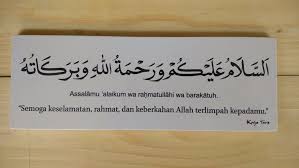 اَلسَّلَامُ عَلَيْكُمْ وَرَحْمَةُ اللهِ وَبَرَكَاتُهُ
Assalāmu 'alaikum wa raḥmatullāhi wa barakātuh.
"Semoga keselamatan, rahmat, dan keberkahan Allah terlimpah kepadamu."